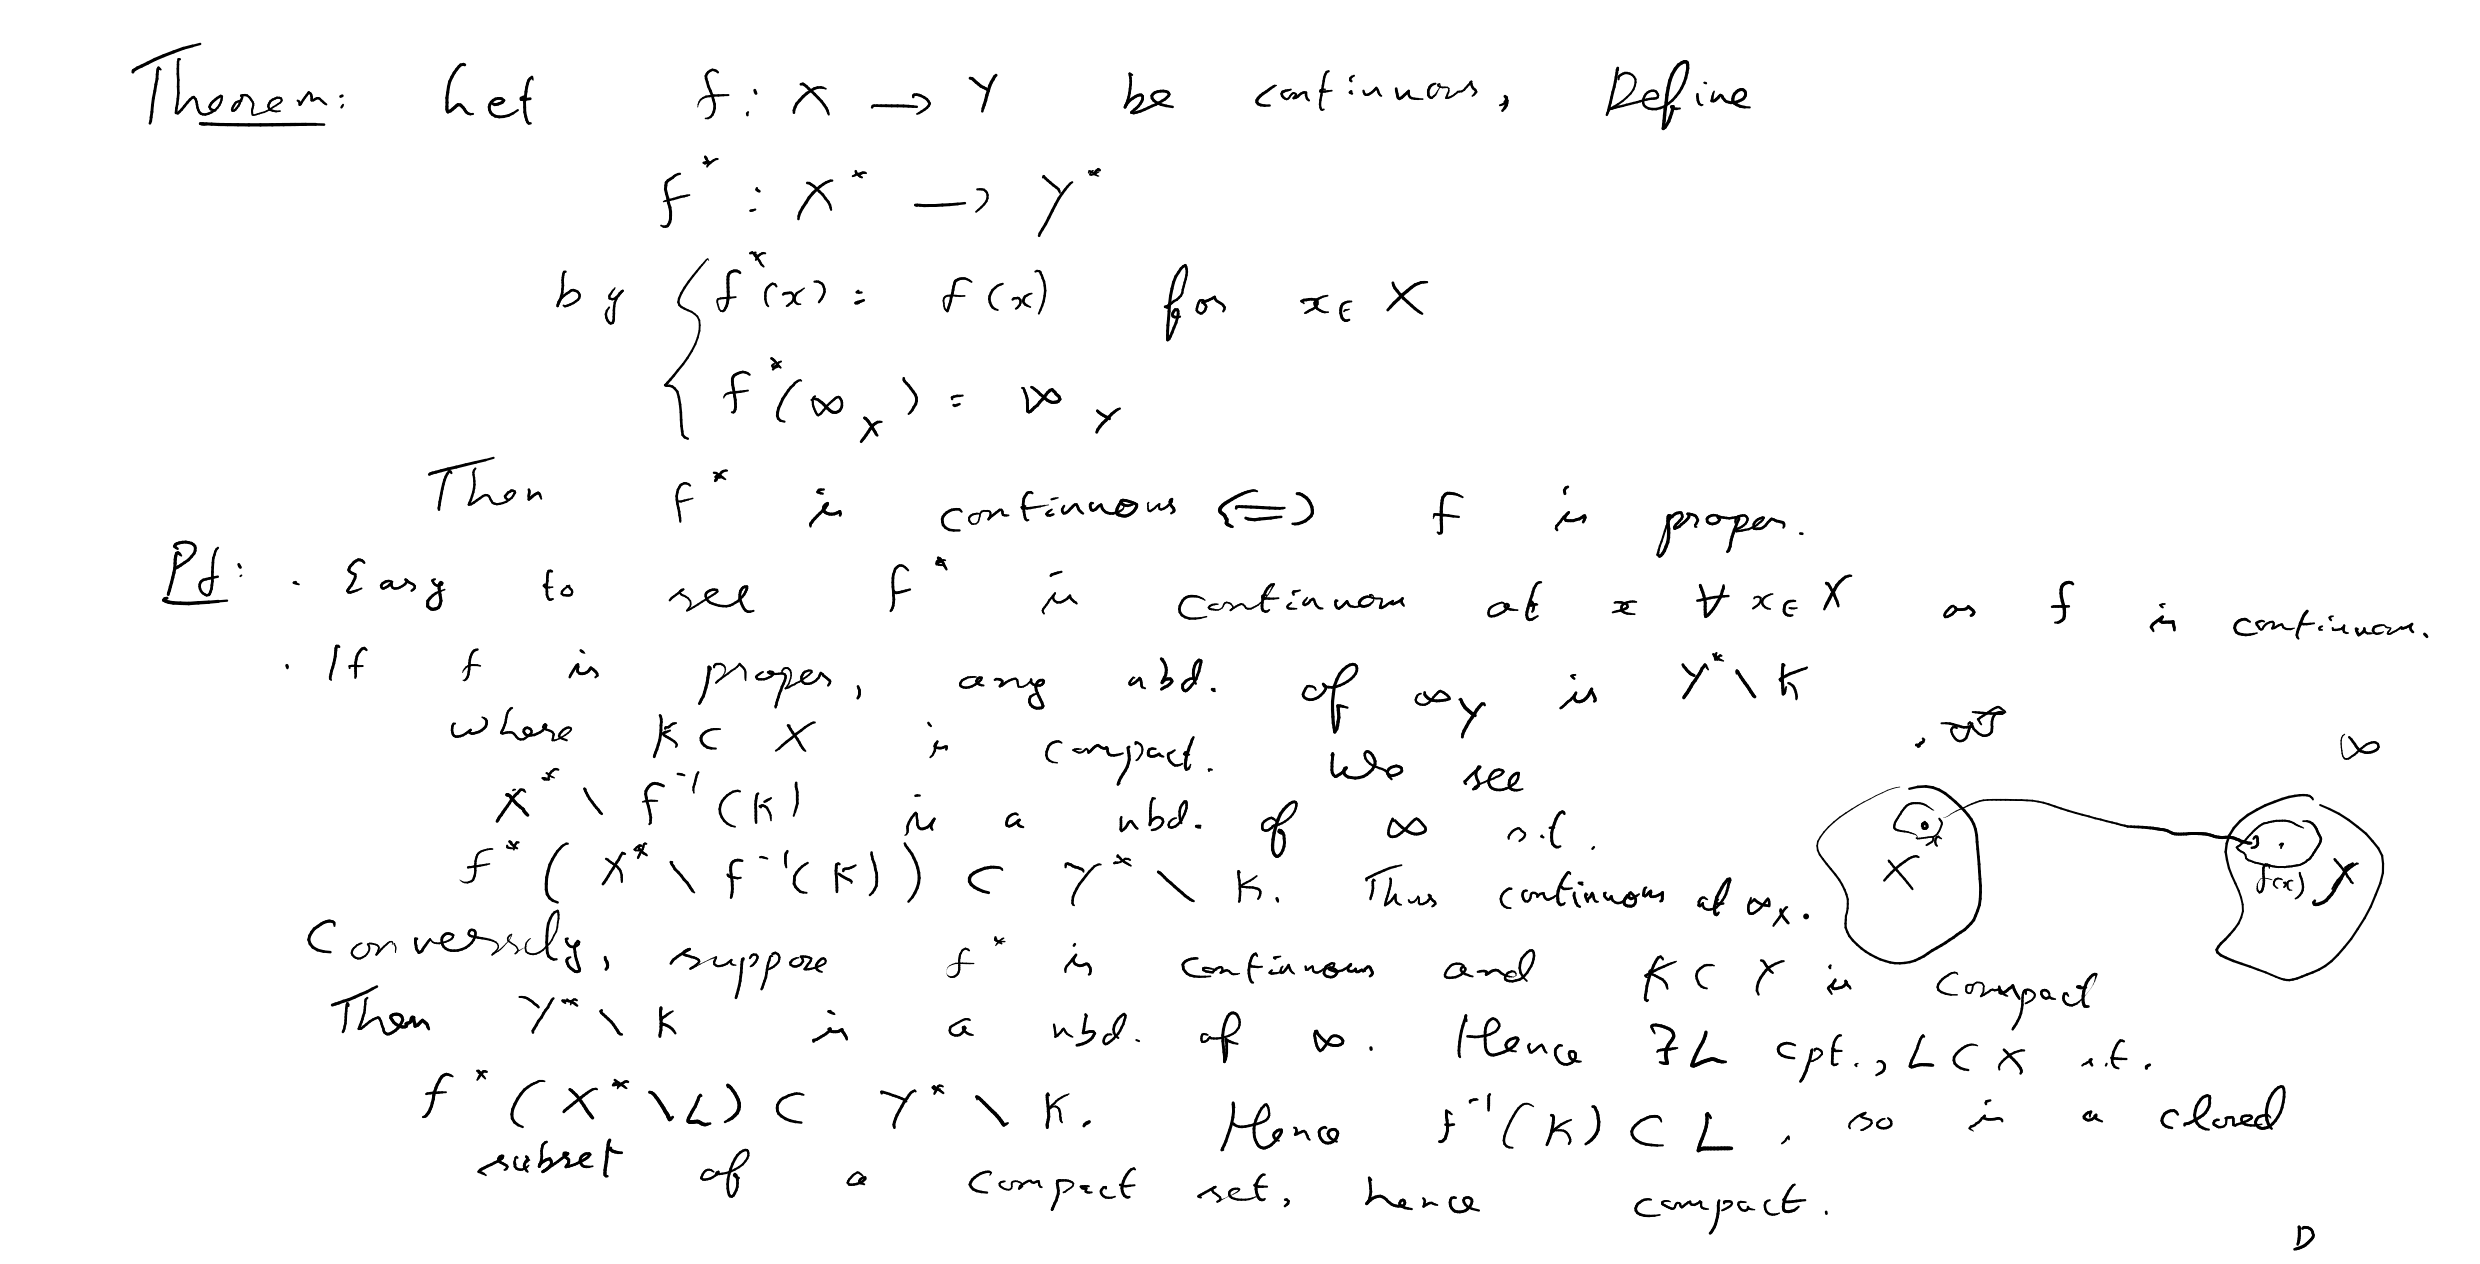 Theorem: Let f: X → Y be continuous, Define
f* : X* → Y*
by { f*(x) = f(x) for x ∈ X
f*(∞_X) = ∞_Y
Then f* is continuous ⇔ f is proper.
Pf: · Easy to see f* is continuous at x ∀ x ∈ X as f is continuous.
· If f is proper, any nbd. of ∞_Y is Y* \ K
where K ⊂ X is compact. We see
X* \ f⁻¹(K) is a nbd. of ∞ s.t.
f*(X* \ f⁻¹(K)) ⊂ Y* \ K. Thus continuous at ∞_X.
∞
x
X
f(x) Y
Conversely, suppose f* is continuous and K ⊂ Y is compact
Then Y* \ K is a nbd. of ∞. Hence ∃ L cpt., L ⊂ X s.t.
f*(X* \ L) ⊂ Y* \ K. Hence f⁻¹(K) ⊂ L, so is a closed
subset of a compact set, hence compact.
□